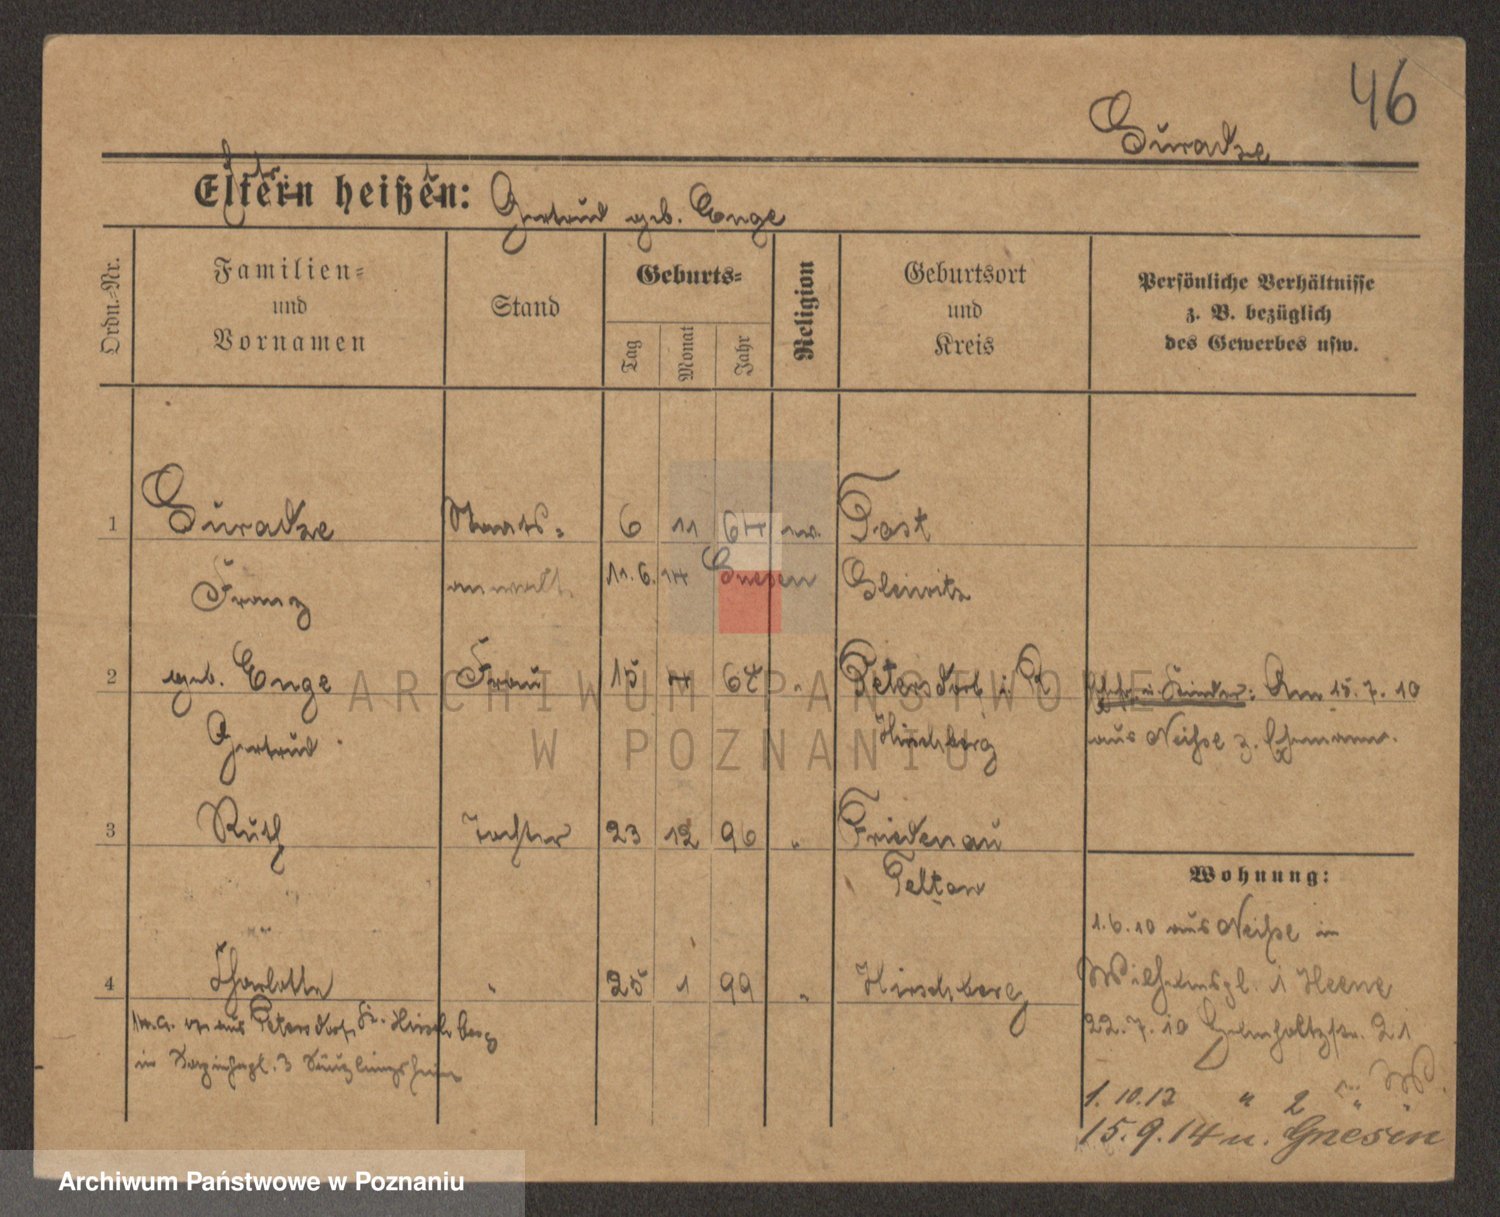 46
Suradze
Eltern heißen: Gertrud geb. Enge
Ordn.-Nr.
Familien-
und
Vornamen
Stand
Geburts-
Tag
Monat
Jahr
Religion
Geburtsort
und
Kreis
Persönliche Verhältnisse
z. B. bezüglich
des Gewerbes usw.
1 Suradze Staats- 6 11 64 ev. Tost
Franz anwalt. 11.6.14 Gnesen Gleiwitz
2 geb. Enge Frau 15 4 67 " Petersdorf i R
Gertrud Hirschberg
Kinder: Am 15.7.10
aus Neiße z.
3 Ruth Tochter 23 12 96 " Friedenau
Teltow
4 Charlotte " 25 1 99 " Hirschberg
aus Petersdorf Kr. Hirschberg
in 3 Säuglingsheim
Wohnung:
1.6.10 aus Neiße in
Wilhelmspl. 1 Heene
22.7.10 Helmholtzstr. 21
1.10.12 " 2
15.9.14 n. Gnesen
ARCHIWUM PAŃSTWOWE
W POZNANIU
Archiwum Państwowe w Poznaniu